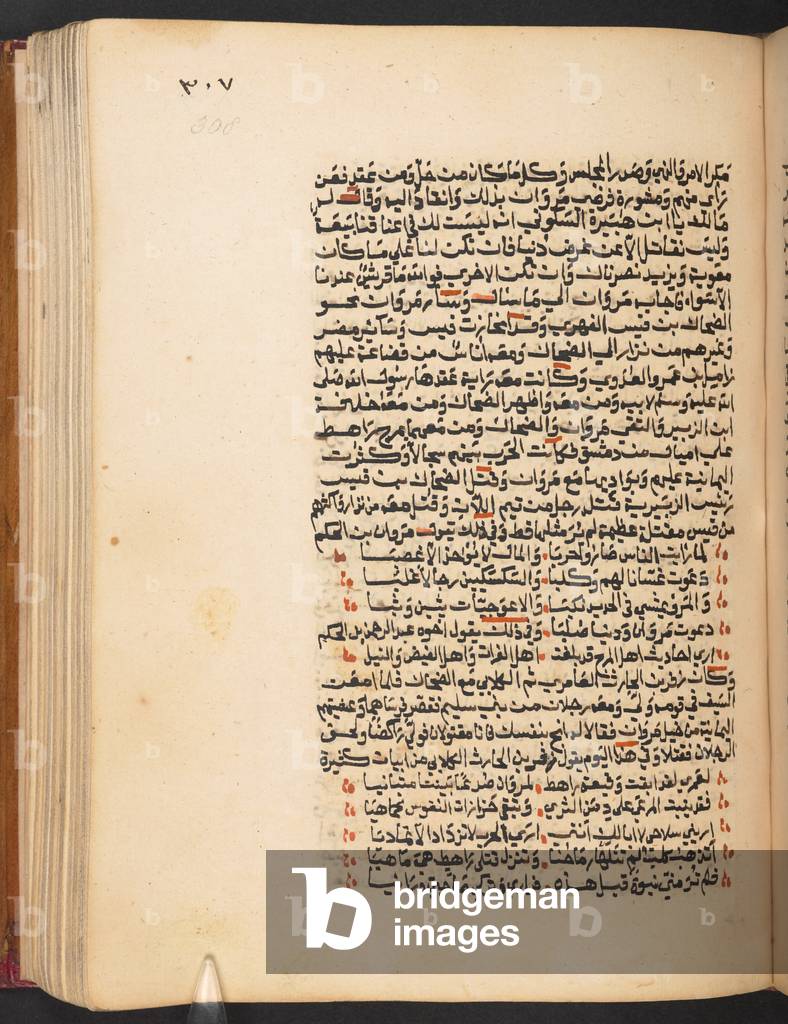 ٣٠٧
308
الامر والنهي وصدر المجلس وكل ما كان من حل ومن عقد فعن
راى منهم ومشورة فرضى مروان بذلك وانقاد اليه وقال له
مالك بن هبيرة السكوني انه ليست لك في اعناقنا بيعة
وليس نقاتل الا عن عرض دنيا فان تكن لنا على ما كان
معوية ويزيد نصرناك وان تكن الاخرى فوالله ما قريش عندنا
الا سواء فاجابه مروان الى ما سال وسار مروان نحو
الضحاك بن قيس الفهري وقد انحازت قيس وساير مضر
وغيرهم من نزار الى الضحاك ومعه اناس من قضاعة عليهم
وايل بن عمرو العدوي وكانت معه راية عقدها رسول الله صلى
الله عليه وسلم لابيه ومن معه واظهر الضحاك ومن معه خلافة
ابن الزبير والتقى مروان والضحاك ومن معهما بمرج راهط
على اميال من دمشق فكانت الحرب بينهم سجالا وكثرت
اليمانية عليهم وبواديها مع مروان وقتل الضحاك بن قيس
رئيس الزبيرية قتله رجل من تيم اللات وقتل معه من نزار واكثرهم
من قيس مقتلة عظيمة لم ير مثلها قط وفي ذلك يقول مروان بن الحكم
لما رايت الناس صاروا حربا والمال لا يؤخذ الا غصبا
دعوت غسانا لهم وكلبا والسكسكيين رجالا غلبا
والقين تمشي في الحديد نكبا والاعوجيات يثبن وثبا
وفي ذلك يقول اخوه عبد الرحمن بن الحكم
ارى احاديث اهل المرج قد بلغت اهل الفرات واهل الفيض والنيل
وكان زفر بن الحارث العامري ثم الكلابي مع الضحاك فلما امعن
السيف في قومه ولى ومعه رجلان من بني سليم فقصر فرساهما وغشيتهم
اليمانية من خيل مروان فقالا له انج بنفسك فانا مقتولان فولى راكضا ولحق
الرجلان فقتلا وفي هذا اليوم يقول زفر بن الحارث الكلابي من ابيات كثيرة
لعمري لقد ابقت وقيعة راهط لمروان صدعا بينا متنائيا
فقد ينبت المرعى على دمن الثرى وتبقى حزازات النفوس كما هيا
اريني سلاحي لا ابا لك انني ارى الحرب لا تزداد الا تماديا
اتذهب كلب لم تنلها رماحنا وتترك قتلى راهط هي ما هيا
فلم تر مني نبوة قبل هذه فراري وتركي صاحبي ورائيا
bridgeman
images